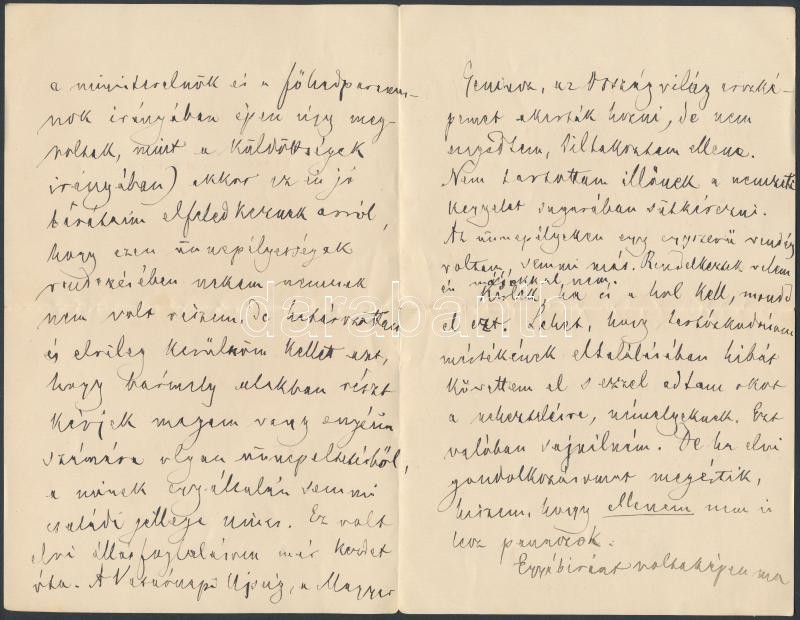 a ministerelnök és a főhadparancs-
nok irányában épen úgy meg-
voltak, mint a küldöttségek
irányában) akkor ez én jó
barátaim elfeledkeznek arról,
hogy ezen ünnepélyességek
rendezésében nekem nemcsak
nem volt részem, de határozottan
és elvileg kerülnöm kellett azt,
hogy bármely alakban részt
kérjek magam vagy enyéim
számára olyan ünnepeltetésből,
a minek egyáltalán semmi
családi jellege nincs. Ez volt
elvi állásfoglalásom már kezdet
óta. A Vasárnapi Ujság, a Magyar
Geniusz, az Ország világ arczké-
pemet akarták hozni, de nem
engedtem, tiltakoztam ellene.
Nem tartottam illőnek a nemzeti
kegyelet sugarában sütkérezni.
Az ünnepélyeken egy egyszerű vendég
voltam, semmi más. Rendelkeztek velem
én másokkal, nem.
Kérlek, ha és a hol kell, mondd
el ezt. Lehet, hogy tartózkodásom
mértékének eltalálásában hibát
követtem el s ezzel adtam okot
a neheztelésre, némelyeknek. Ezt
valóban sajnálnám. De ha elvi
gondolkozásomat megértik,
hiszem, hogy ellenem nem is
lesz panaszok.
Egyébiránt voltaképen ma
darabanth.com